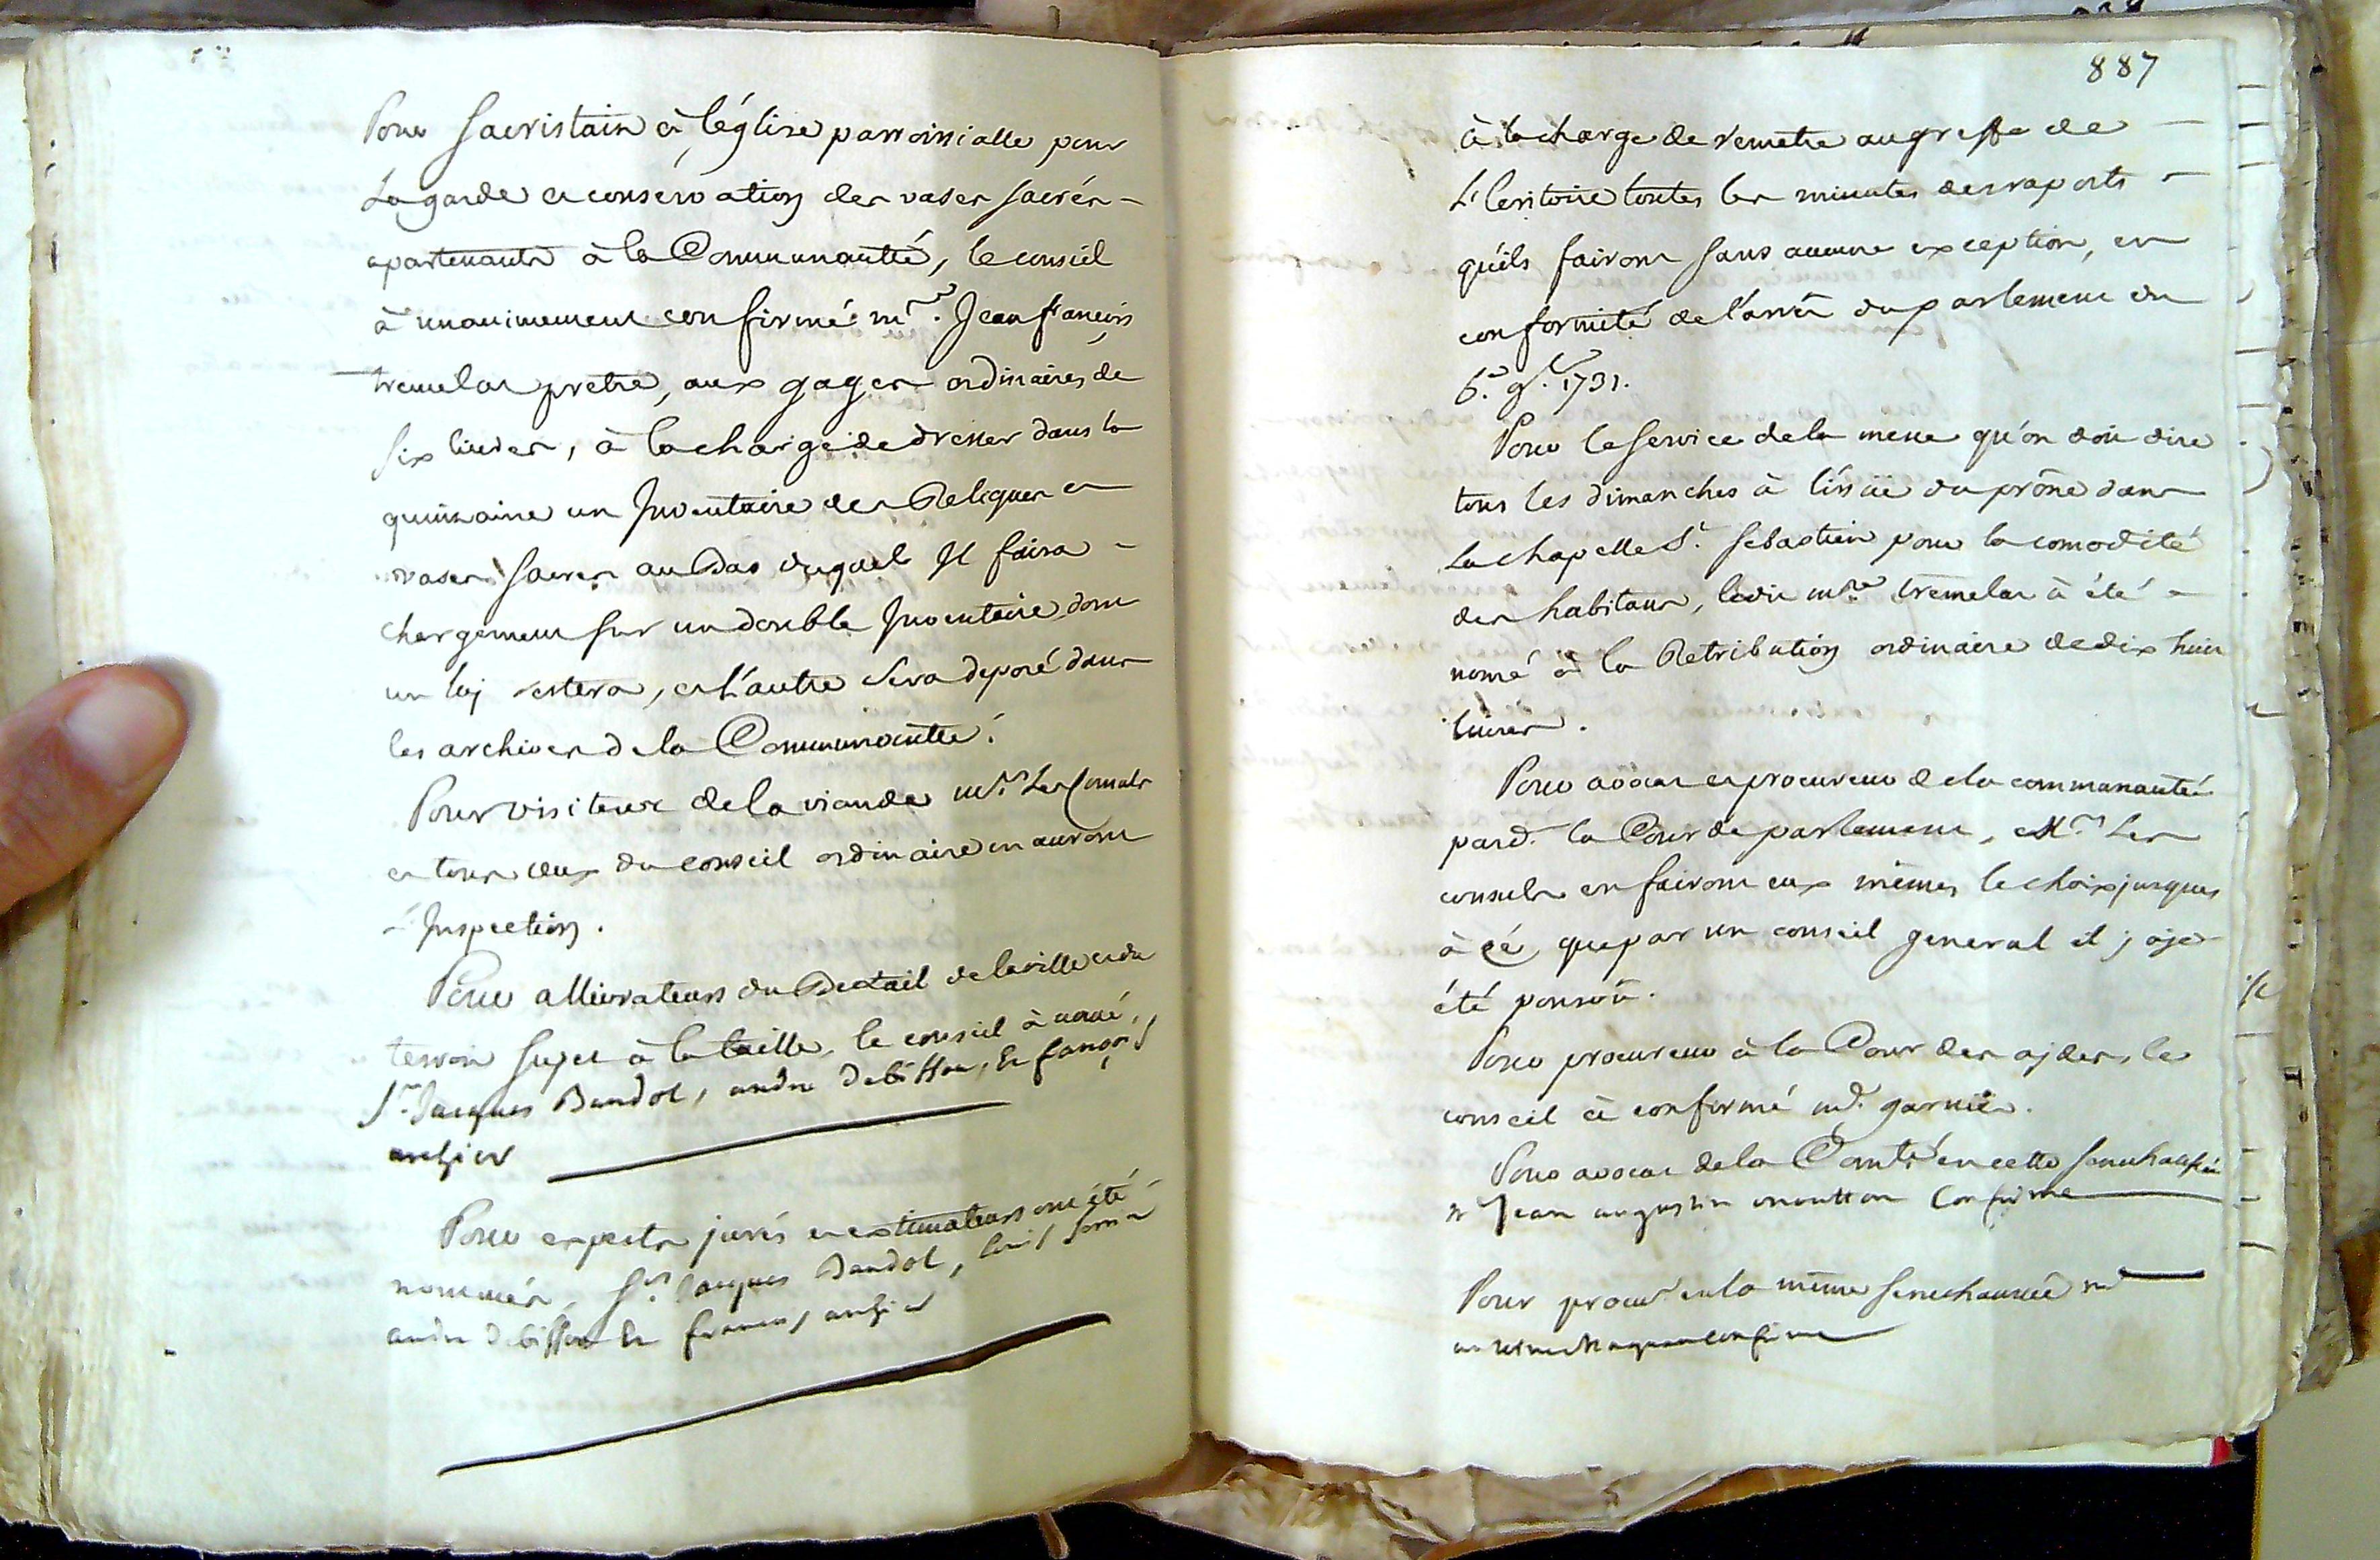 Pour Sacristain à l'église parroissialle pour
La garde et conservation des vases sacrés
apartenants à la Communautté, le conseil
à unanimement confirmé mre. Jean francois
tremelat pretre, aux gages ordinaires de
six livres, à la charge de dresser dans la
quinzaine un Inventaire des Reliques et
vases sacrés au bas duquel Il faira
chargement sur un double Inventaire dont
un luj restera, et L'autre sera deposé dans
les archives de la Communautté.
Pour visiteur de la viande mrs. Les Consuls
et tous ceux du conseil ordinaire en auront
l'Inspection.
Pour allivrateurs du Detail de la ville et du
terroir sujet à la taille, le conseil à nomé,
Srs. Jacques Baudol, andré
archier
Pour experts jurés et extimateurs ont été
nommés, Srs. Jacques Baudol,
andré francois archier
887
à la charge de remetre au greffe de
L'Ecritoire toutes les minutes des raports
qu'ils fairont sans aucune exception, en
conformité de l'arrêt du parlement du
6e. 9e. 1731.
Pour le service de la messe qu'on doit dire
tous les dimanches à l'issüe du prône dans
La chapelle St. Sebastien pour la comodité
des habitans, ledit mre. tremelat à été
nomé à la Retribution ordinaire de dix huit
livres.
Pour avocat et procureur de la communauté
pard. la Cour de parlement, Mrs. Les
consuls en fairont eux mêmes le choix jusques
à cé que par un conseil general il j aje
été pourvû.
Pour procureur à la Cour des ajdes, le
conseil à confirmé me. garnier.
Pour avocat de la Comté. en cette senechaussée
me Jean augustin moutton Confirmé
Pour procur en la même senechaussée me
confirmé